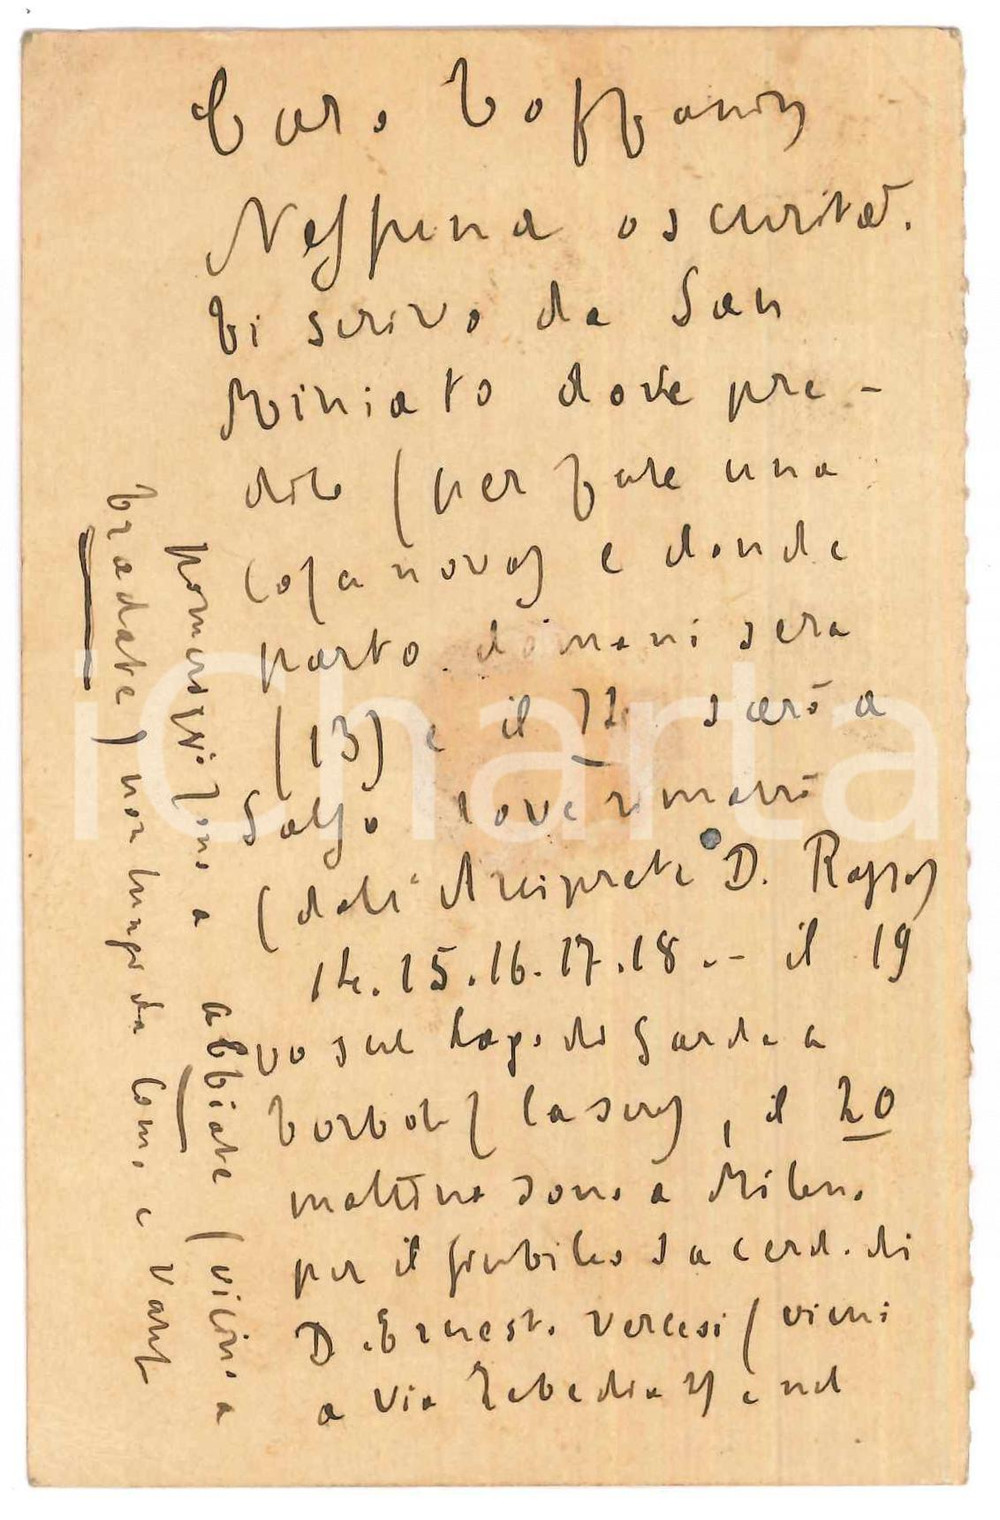 Caro Toffanin
Nessuna oscurità.
Ti scrivo da San
Miniato dove pre-
dico (per fare una
cosa nova) e donde
parto domani sera
(13) e il 14 sarò a
Salso dove rimarrò
(dall'Arciprete D. Rossi)
14.15.16.17.18.- il 19
vo sul Lago di Garda a
Torbole (la sera), il 20
mattina sono a Milano
per il giubileo sacerd. di
D. Ernesto Vercesi (vieni
a Via Zebedia) e nel
pomeriggio sono a abbiate (vicino a
tradate) non lungi da Como e
iCharta